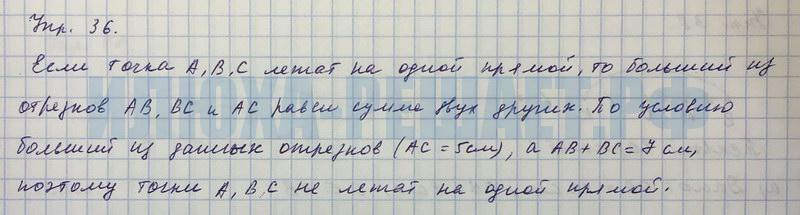 Упр. 36.
Если точка А, В, С лежат на одной прямой, то больший из
отрезков АВ, ВС и АС равен сумме двух других. По условию
больший из данных отрезков (АС = 5см), а АВ + ВС = 7 см,
поэтому точки А, В, С не лежат на одной прямой.
ИЛЮХА-РЕШАЕТ.РФ